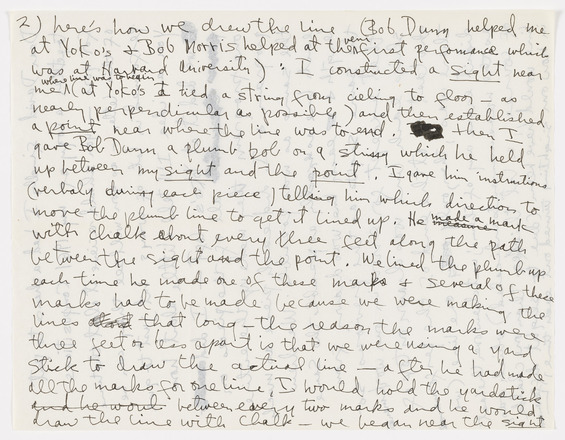 2) here's how we drew the line (Bob Dunn helped me
at Yoko's & Bob Morris helped at the very first perfomance which
was at Harvard University) : I constructed a sight near
where line was to begin
me (at Yoko's I tied a string from cieling to floor — as
nearly perpendicular as possible) and then established
a point near where the line was to end. then I
gave Bob Dunn a plumb bob on a string which he held
up between my sight and the point. I gave him instructions
(verbaly during each piece) telling him which direction to
move the plumb line to get it lined up. He made a mark
measure
with chalk about every three feet along the path
between the sight and the point. We lined the plumb up
each time he made one of these marks & several of these
marks had to be made because we were making the
lines that long — the reason the marks were
three feet or less apart is that we were using a yard
stick to draw the actual line — after he had made
all the marks for one line, I would hold the yardstick
and he would between every two marks and he would
draw the line with chalk — we began near the sight